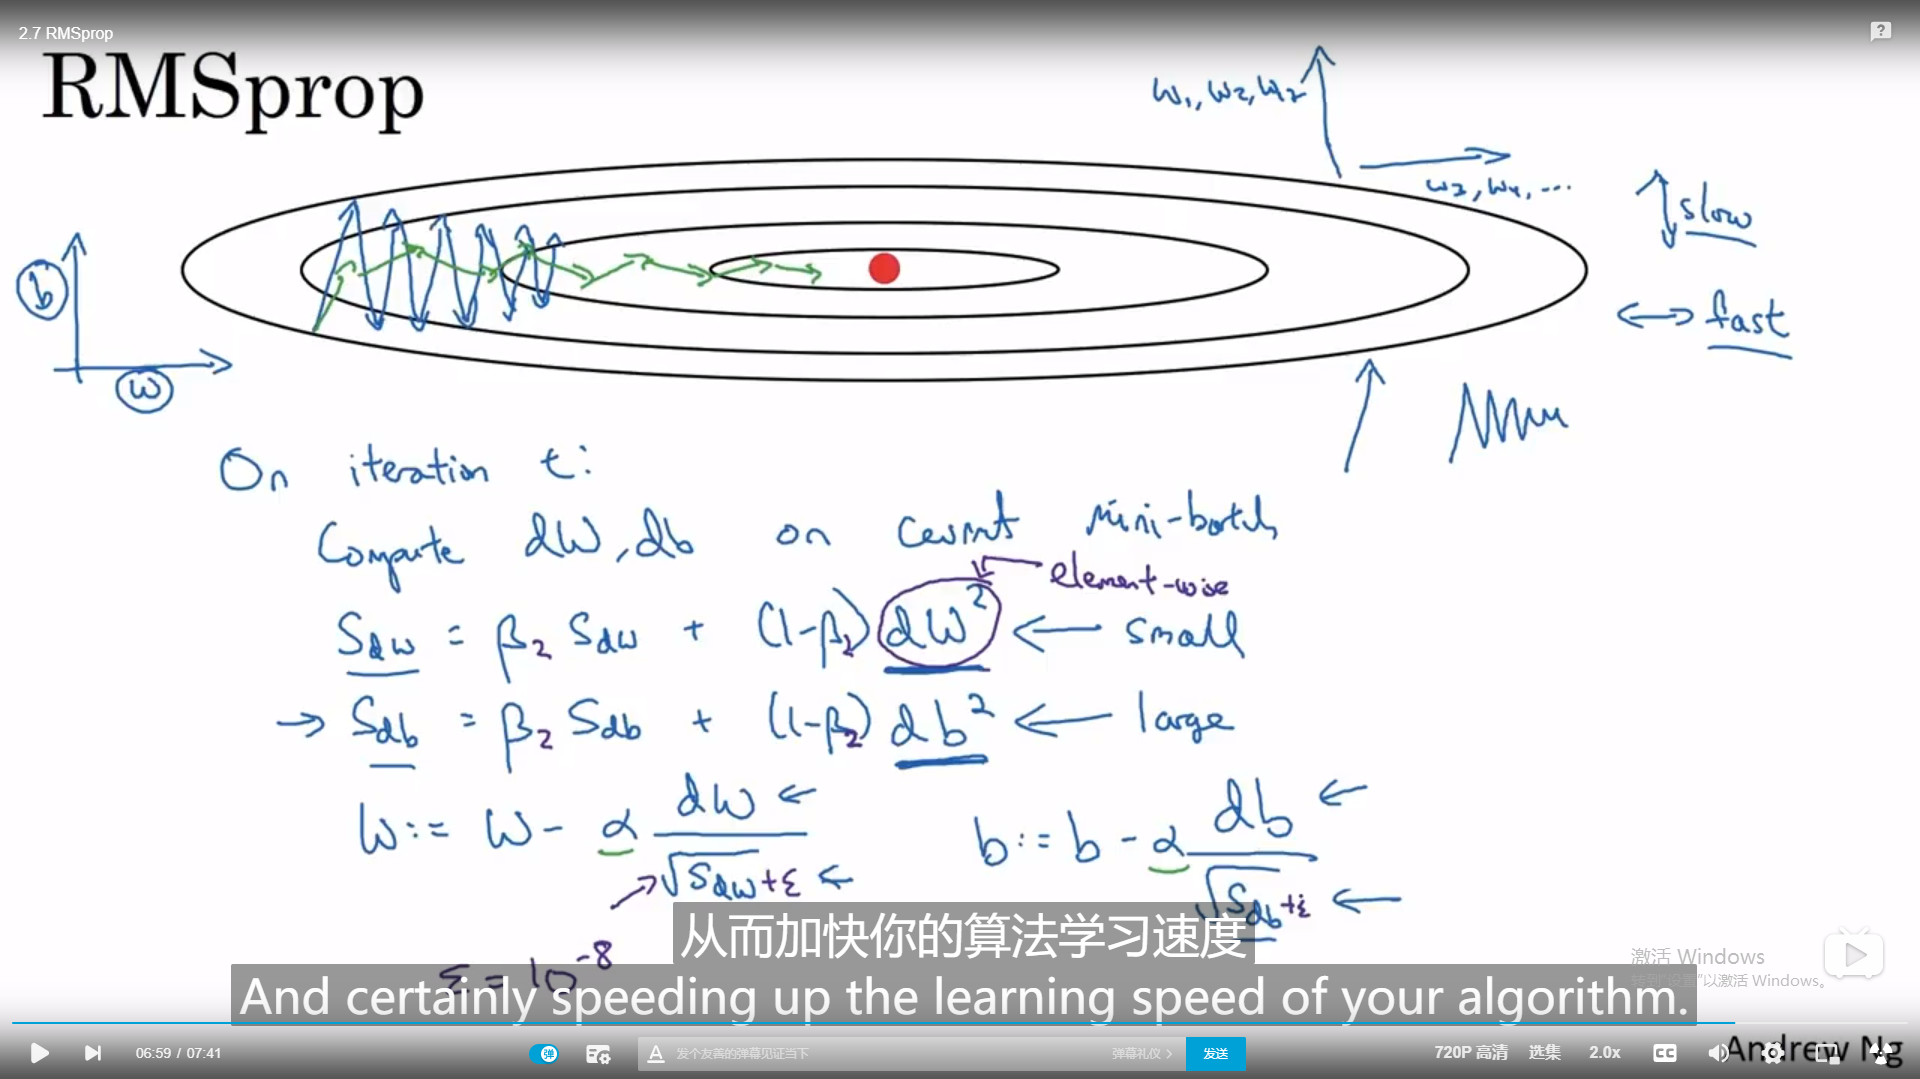 2.7 RMSprop
RMSprop
w₁, w₂, w₂
w₃, w₄, ...
slow
fast
b
w
On iteration t:
Compute dW, db on current mini-batch
element-wise
S_dw = β₂ S_dw + (1-β₂) dW² ← small
→ S_db = β₂ S_db + (1-β₂) db² ← large
w := w - α dw / √S_dw + ε ←
b := b - α db / √S_db + ε ←
ε = 10⁻⁸
从而加快你的算法学习速度
And certainly speeding up the learning speed of your algorithm.
激活 Windows
转到"设置"以激活 Windows。
Andrew Ng
06:59 / 07:41
弹
A 发个友善的弹幕见证当下
弹幕礼仪 >
发送
720P 高清
选集
2.0x
CC